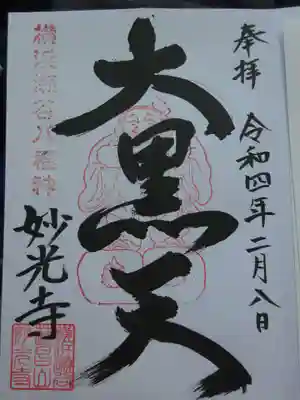 奉拝
令和四年二月八日
大黒天
横浜瀬谷八福神
妙光寺